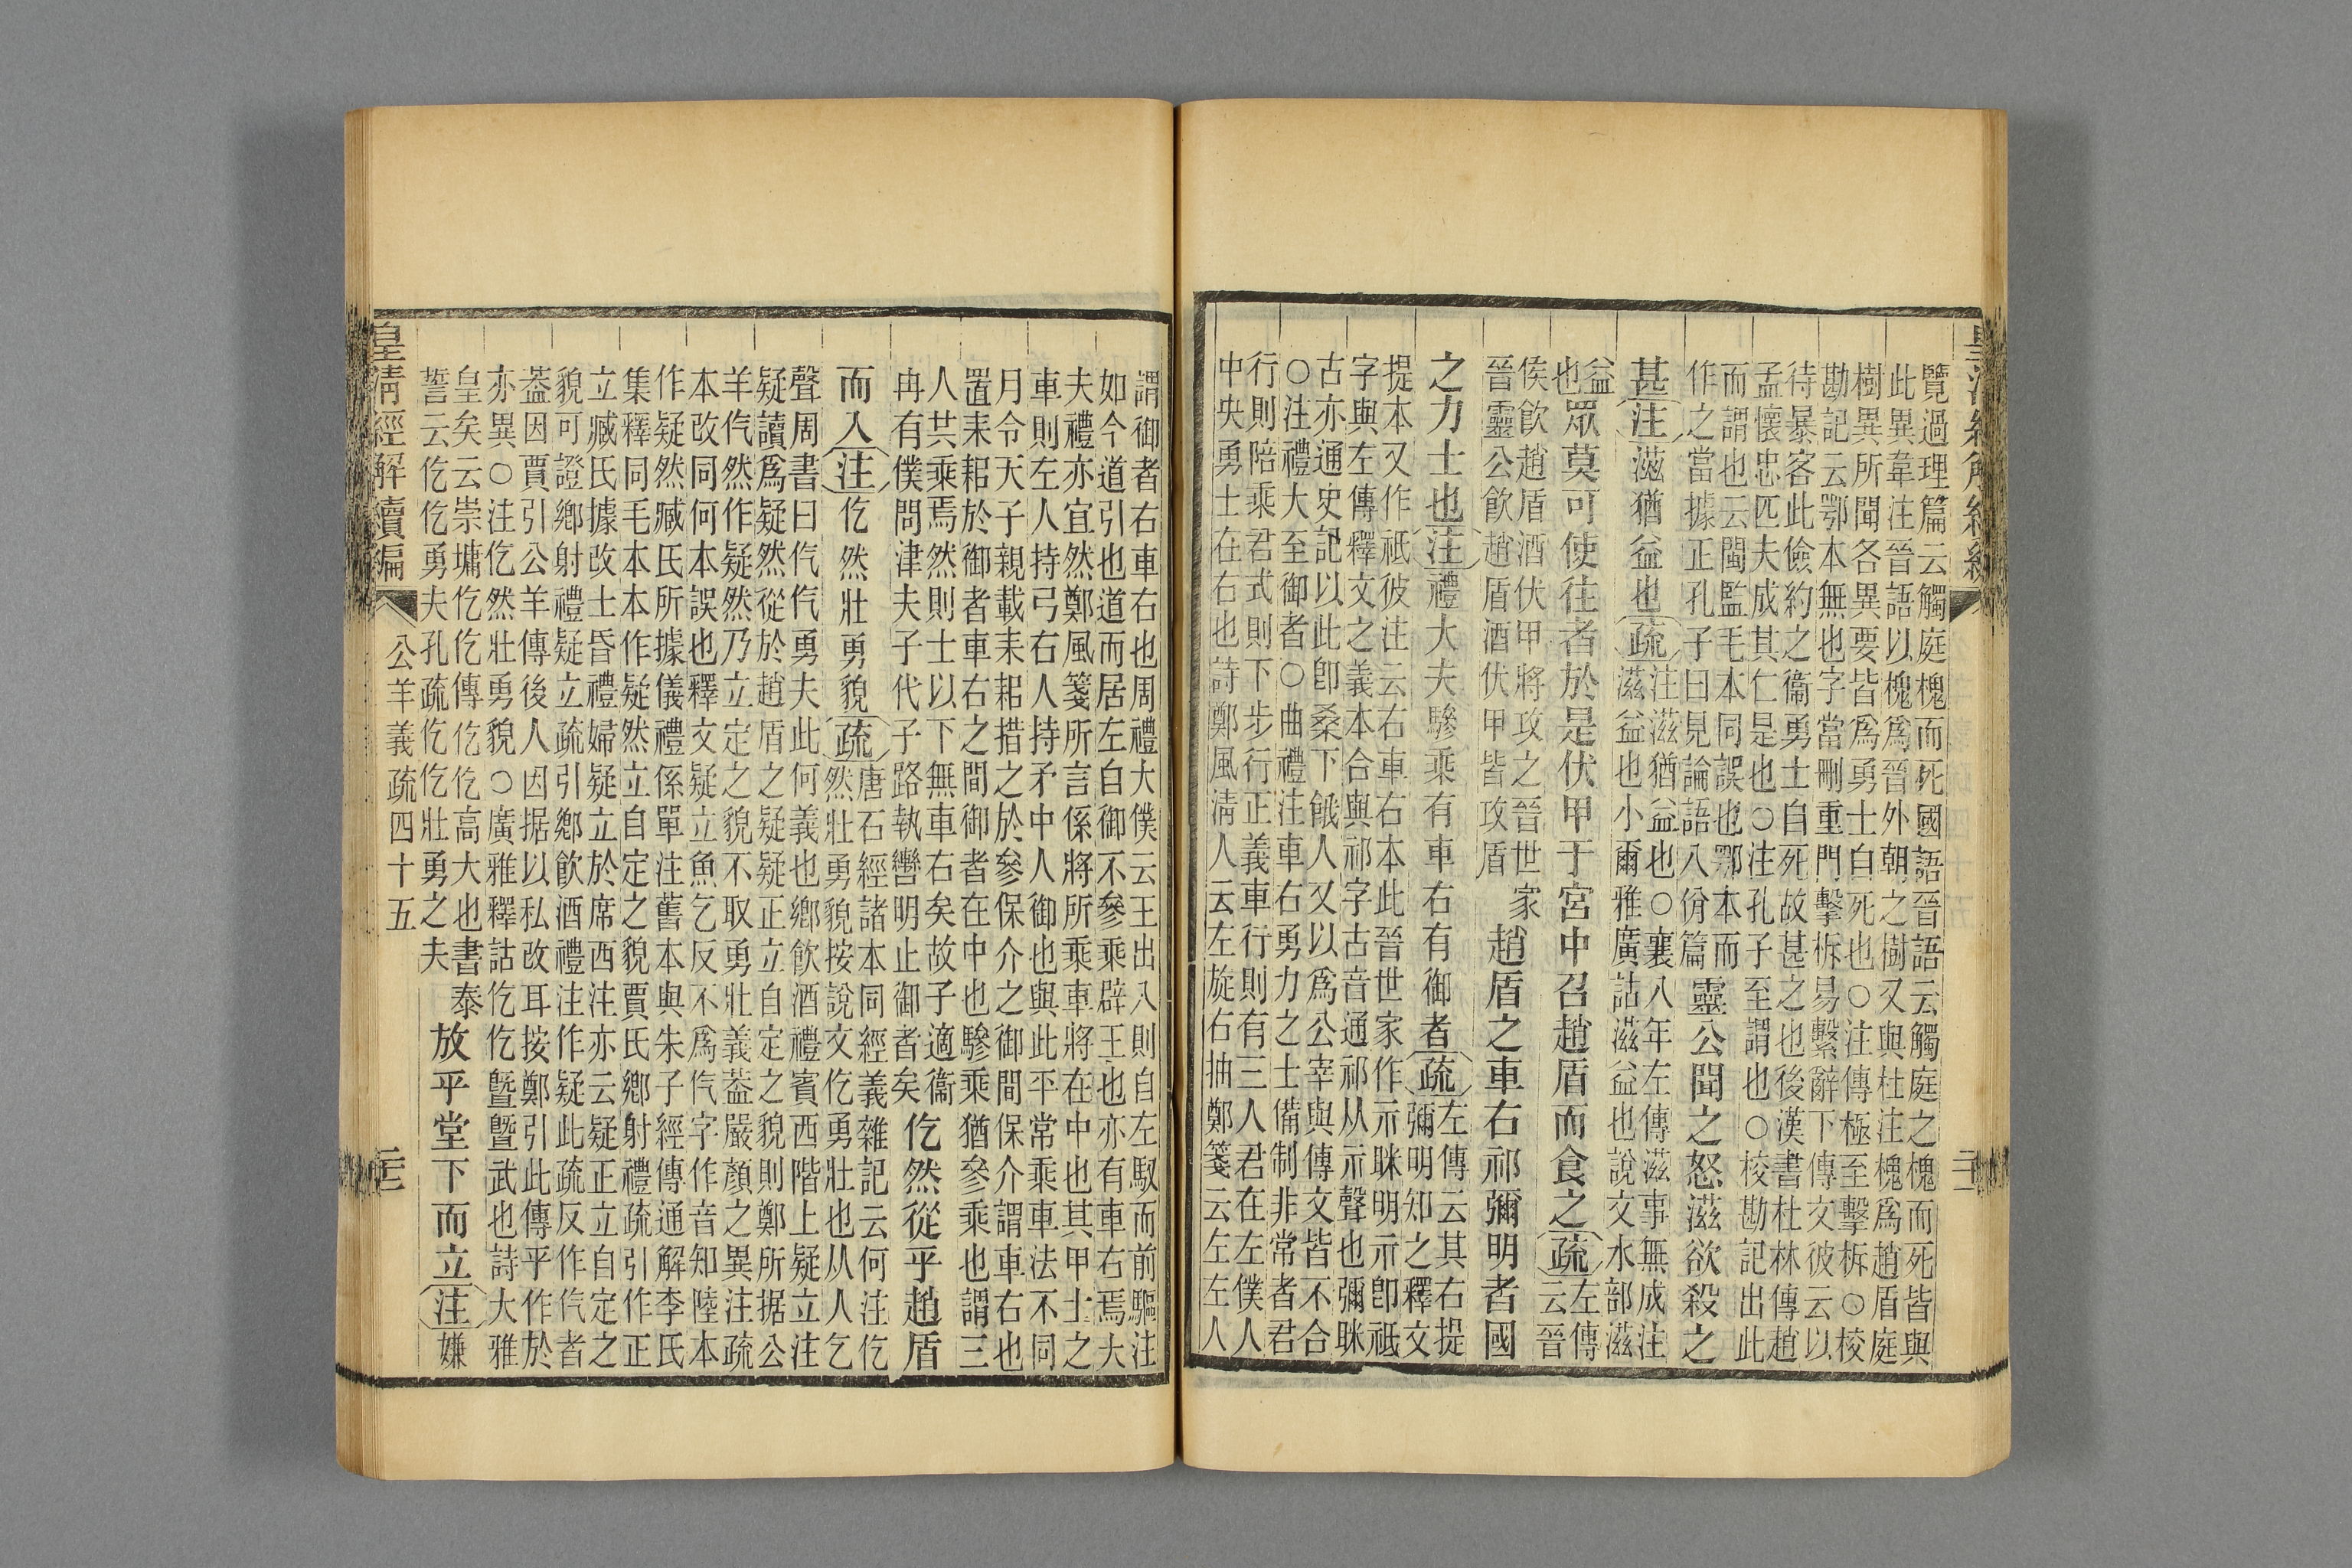 覽過理篇云觸庭槐而死國語晉語云觸庭之槐而死皆與
此異韋注晉語以槐爲晉外朝之樹又與杜注槐爲趙盾庭
樹異所聞各異要皆爲勇士自死也○注傳極至擊柝○校
勘記云鄂本無也字當刪重門擊柝易繫辭下傳文彼云以
待暴客此儉約之衞勇士自死故甚之也後漢書杜林傳趙
孟懷忠匹夫成其仁是也○注孔子至謂也○校勘記出此
而謂也云閩監毛本同誤也鄂本而
作之當據正孔子曰見論語八佾篇
靈公聞之怒滋欲殺之
甚注滋猶益也疏
注滋猶益也○襄八年左傳滋事無成注
滋益也小爾雅廣詁滋益也說文水部滋
益
也
眾莫可使往者於是伏甲于宮中召趙盾而食之疏
左傳
云晉
侯飲趙盾酒伏甲將攻之晉世家
晉靈公飲趙盾酒伏甲皆攻盾
趙盾之車右祁彌明者國
之力士也注禮大夫驂乘有車右有御者疏
左傳云其右提
彌明知之釋文
提本又作祇彼注云右車右本此晉世家作示眯明示卽祗
字與左傳釋文之義本合與祁字古音通祁从示聲也彌眯
古亦通史記以此卽桑下餓人又以爲公宰與傳文皆不合
○注禮大至御者○曲禮注車右勇力之士備制非常者君
行則陪乘君式則下步行正義車行則有三人君在左僕人
中央勇士在右也詩鄭風清人云左旋右抽鄭箋云左左人
謂御者右車右也周禮大僕云王出入則自左馭而前驅注
如今道引也道而居左自御不參乘辟王也亦有車右焉大
夫禮亦宜然鄭風箋所言係將所乘車將在中也其甲士之
車則左人持弓右人持矛中人御也與此平常乘車法不同
月令天子親載耒耜措之於參保介之御間保介謂車右也
置耒耜於御者車右之間御者在中也驂乘猶參乘也謂三
人共乘焉然則士以下無車右矣故子適衞
冉有僕問津夫子代子路執轡明止御者矣
仡然從乎趙盾
而入注仡然壯勇貌疏
唐石經諸本同經義雜記云何注仡
然壯勇貌按說文仡勇壯也从人乞
聲周書曰仡仡勇夫此何義也鄉飲酒禮賓西階上疑立注
疑讀爲疑然從於趙盾之疑疑正立自定之貌則鄭所据公
羊仡然作疑然乃立定之貌不取勇壯義葢嚴顏之異注疏
本改同何本誤也釋文疑立魚乞反不爲仡字作音知陸本
作疑然臧氏所據儀禮係單注舊本與朱子經傳通解李氏
集釋同毛本本作疑然立自定之貌賈氏鄉射禮疏引作正
立臧氏據改士昏禮婦疑立於席西注亦云疑正立自定之
貌可證鄉射禮疑立疏引鄉飲酒禮注作疑此疏反作仡者
葢因賈引公羊傳後人因据以私改耳按鄭引此傳乎作於
亦異○注仡然壯勇貌○廣雅釋詁仡仡曁曁武也詩大雅
皇矣云崇墉仡仡傳仡仡高大也書泰
誓云仡仡勇夫孔疏仡仡壯勇之夫
放乎堂下而立注嫌
皇清經解續編
公羊義疏四十五